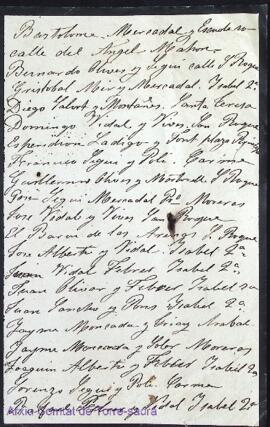 Bartolome Mercadal y Escudero
calle del Angel Mahon
Bernardo Olives y Seguí calle S Roque
Cristobal Mir y Mercadal. Isabel 2ª
Diego Salort y Montañes. Santa Teresa
Domingo Vidal y Vives. San Roque
Espiridion Ladico y Font plaza
Francisco Segui y Poli. Carmen
Guillermo Olives y Martorell S Roque
Seguí Mercadal Moreras
José Vidal y Vives San Roque
El Baron de las Arenas S. Roque
Jose Alberti y Vidal. Isabel 2ª
Juan Vidal Febrer Isabel 2ª
Juan Olivar y Febrer Isabel 2ª
Juan Sancho y Pons Isabel 2ª.
Jayme Moncada y Arabal
Jayme Moncada y Soler Moreras
Joaquin Alberti y Febrer Isabel 2ª
Lorenzo Segui y Poli Carmen
Vidal Isabel 2ª
Arxiu Comtal de Torre-saura